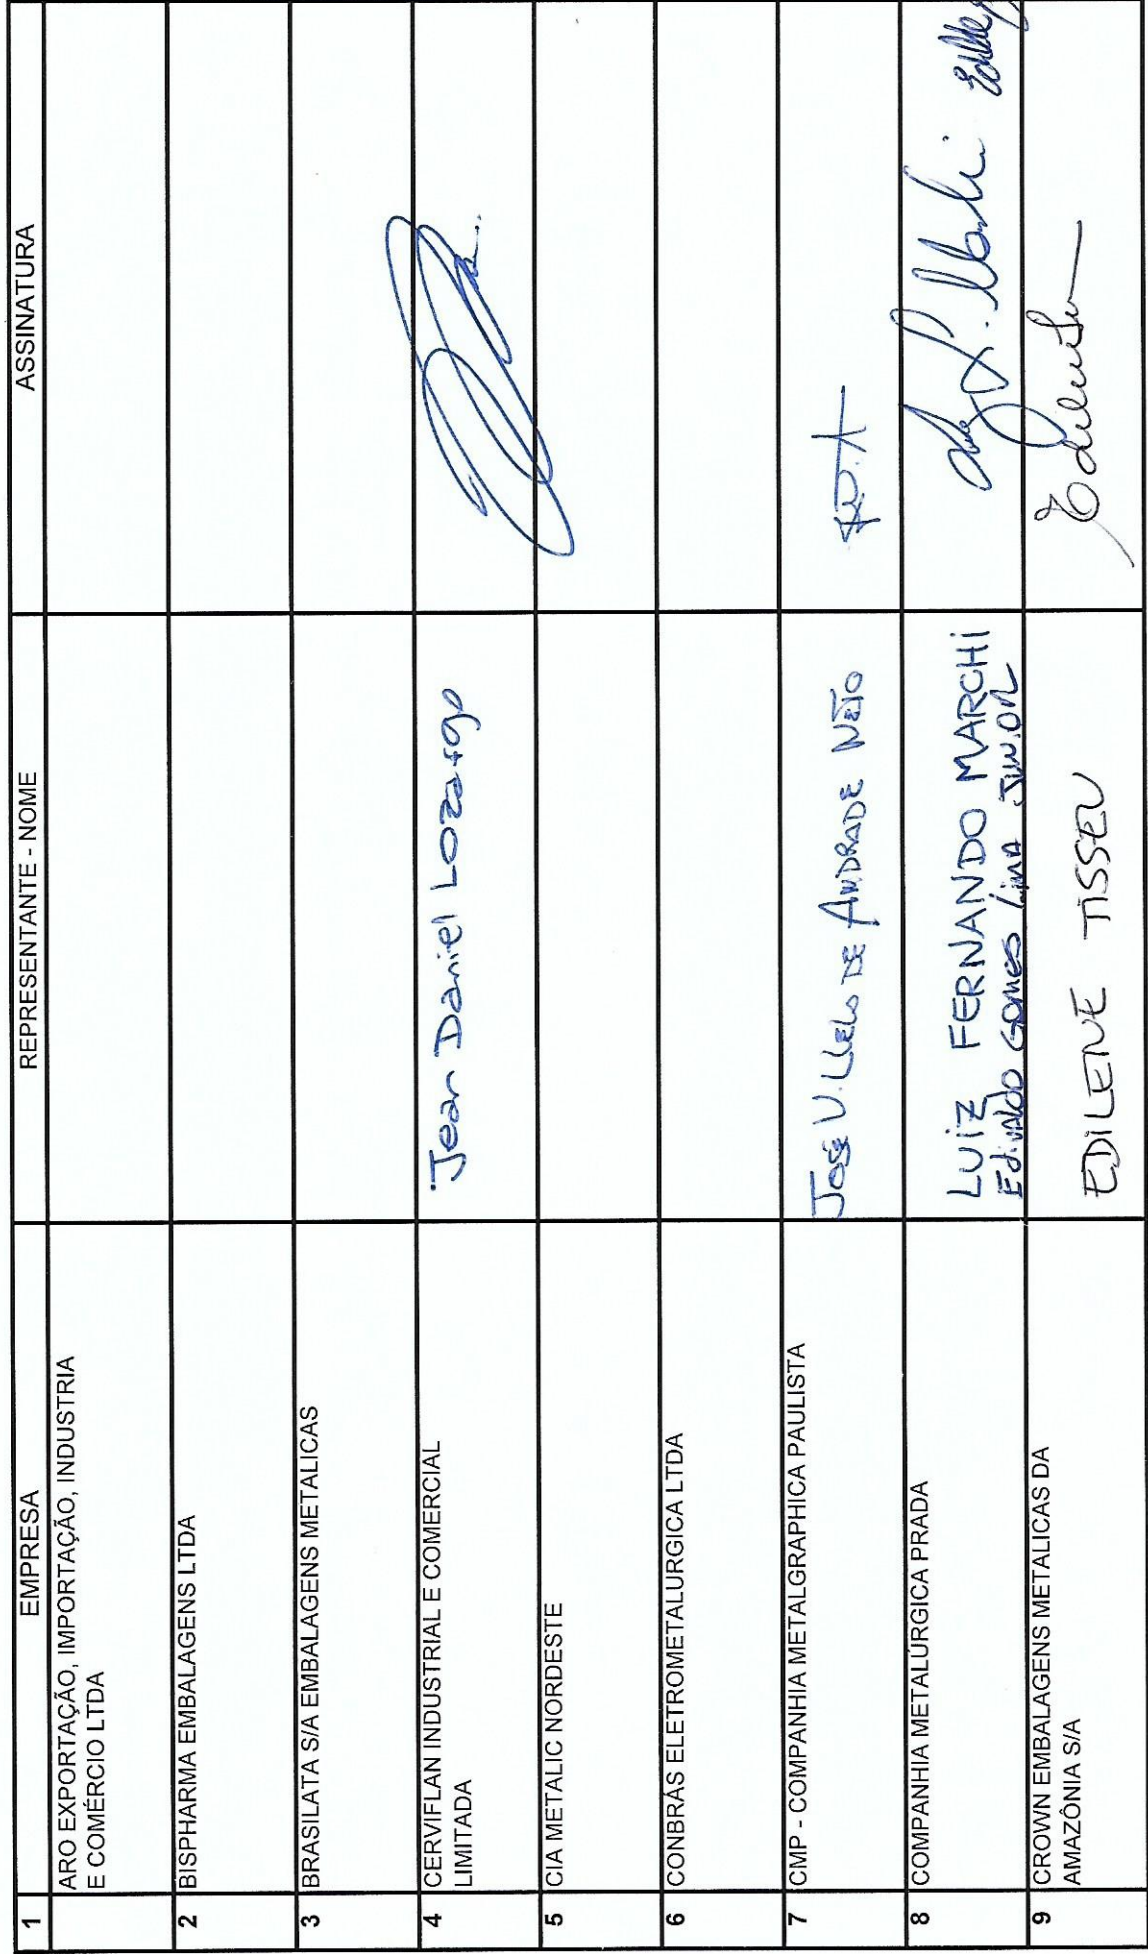 1 EMPRESA REPRESENTANTE - NOME ASSINATURA
ARO EXPORTAÇÃO, IMPORTAÇÃO, INDUSTRIA
E COMÉRCIO LTDA
2 BISPHARMA EMBALAGENS LTDA
3 BRASILATA S/A EMBALAGENS METALICAS
4 CERVIFLAN INDUSTRIAL E COMERCIAL
LIMITADA
Jean Daniel Lozargo
5 CIA METALIC NORDESTE
6 CONBRÁS ELETROMETALURGICA LTDA
7 CMP - COMPANHIA METALGRAPHICA PAULISTA
José V. DE ANDRADE NETO
8 COMPANHIA METALÚRGICA PRADA
LUIZ FERNANDO MARCHI
Edivaldo Gomes Lima JUNIOR
9 CROWN EMBALAGENS METALICAS DA
AMAZÔNIA S/A
EDILENE TISSEU